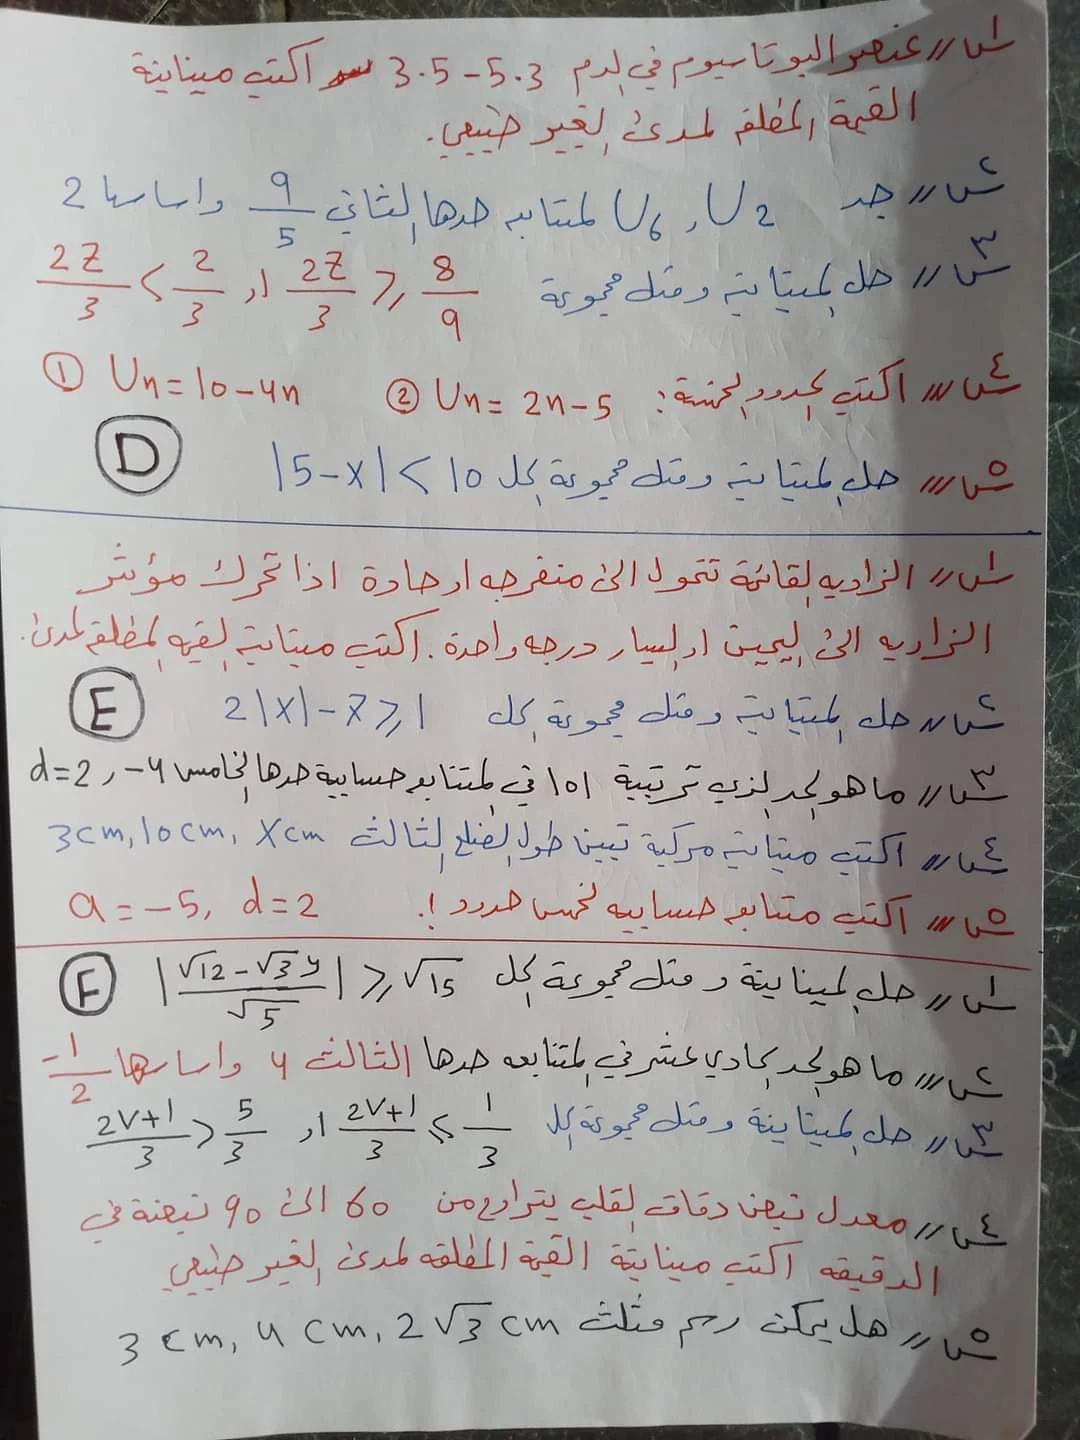 س١// عنصر البوتاسيوم في الدم 5.3 - 3.5 اكتب متباينة
القيمة المطلقة لمدى الغير طبيعي.
س٢// جد U₂ , U₆ لمتتابعه حدها الثاني 9/5 واساسها 2
س٣// حل المتباينة ومثل مجموعة 2Z/3 ≥ 8/9 او 2Z/3 < 2/3
س٤// اكتب الحدود الخمسة: ② Un = 2n-5 ① Un = 10-4n
س٥// حل المتباينة ومثل مجموعة الحل |5-x| < 10
D
س١// الزاويه القائمة تتحول الى منفرجه او حادة اذا تحرك مؤشر
الزاويه الى اليمين او اليسار درجه واحدة. اكتب متباينة القيمه المطلقه لمدى.
س٢// حل المتباينة ومثل مجموعة الحل 2|x| - 7 ≥ 1
E
س٣// ما هو الحد الذي ترتيبة 101 في المتتابعه حسابية حدها الخامس -4 , d=2
س٤// اكتب متباينة مركبة تبين طول الضلع الثالث 3cm, 10cm, xcm
س٥// اكتب متتابعه حسابيه لخمس حدود !. a = -5, d=2
س١// حل المتباينة ومثل مجموعة الحل |(√12 - √3 y)/√5| ≥ √15
F
س٢// ما هو الحد الحادي عشر في المتتابعه حدها الثالث 4 واساسها -1/2
س٣// حل المتباينة ومثل مجموعة الحل 2v+1/3 ≤ 1/3 او 2v+1/3 > 5/3
س٤// معدل نبض دقات القلب يتراوح من 60 الى 90 نبضة في
الدقيقه اكتب متباينة القيمة المطلقه لمدى الغير طبيعي
س٥// هل يمكن رسم مثلث 3 cm, 4 cm, 2√3 cm